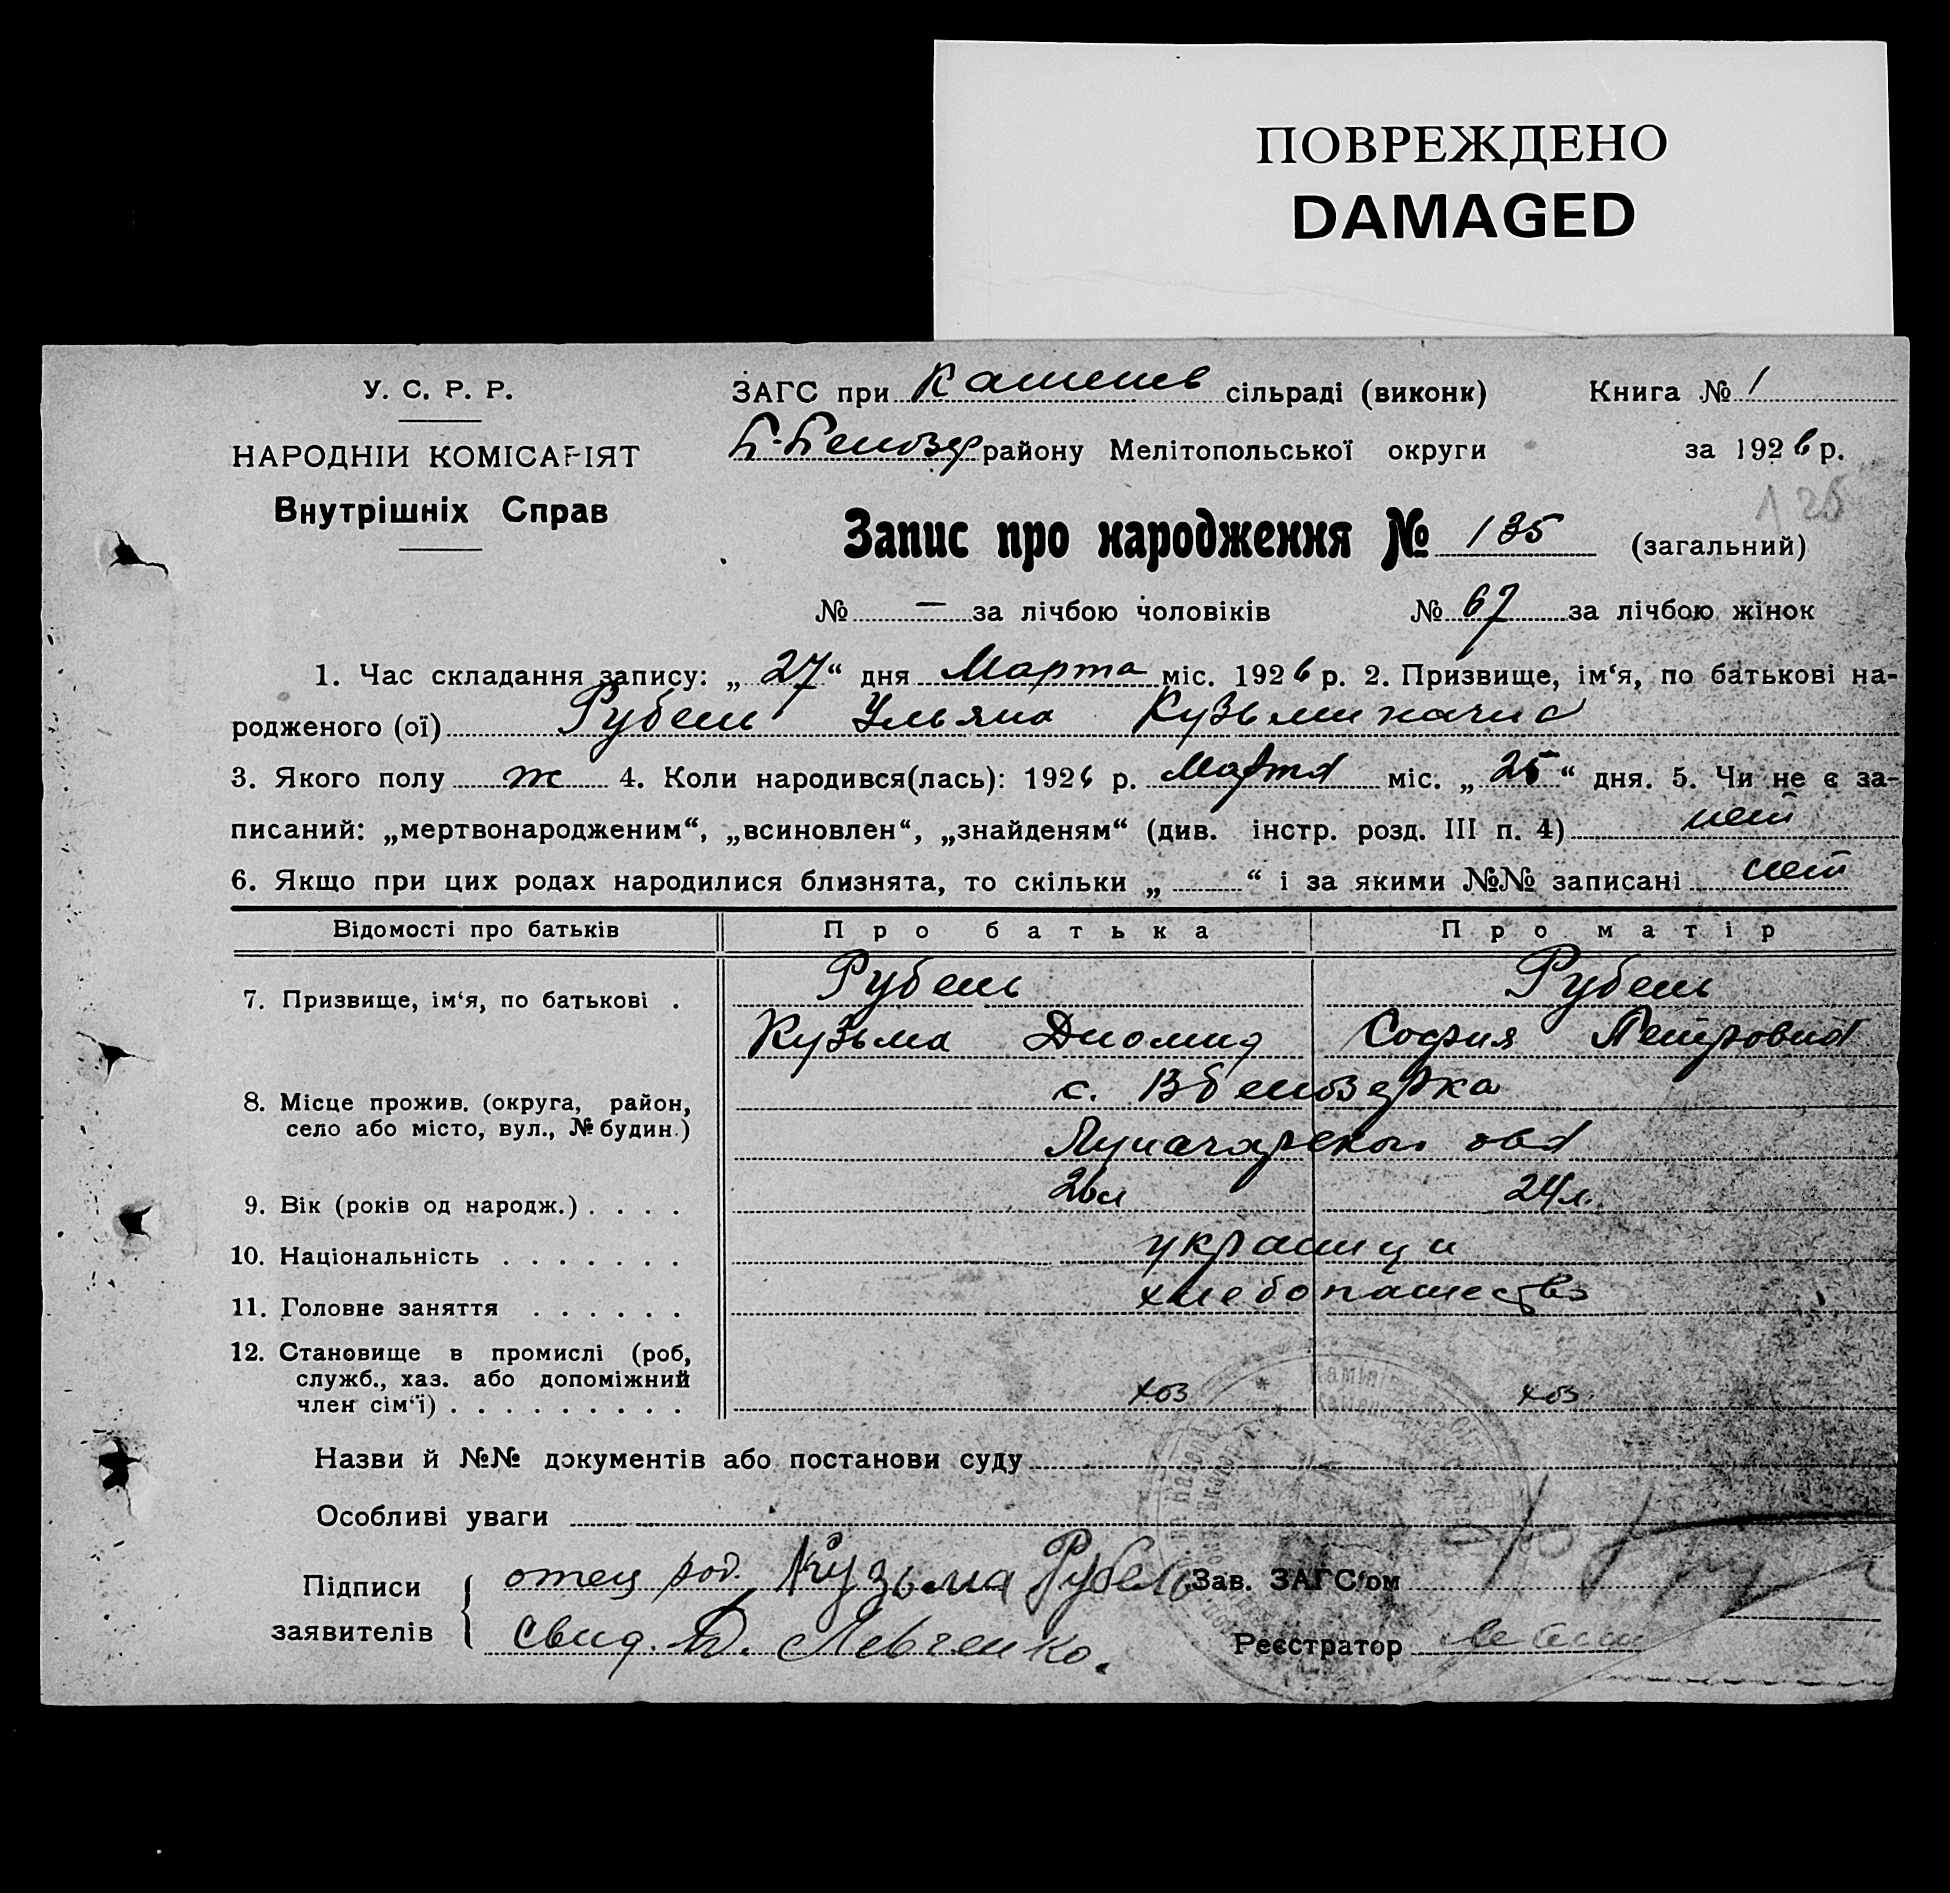 ПОВРЕЖДЕНО
DAMAGED
У. С. Р. Р.
НАРОДНІЙ КОМІСАРІЯТ
Внутрішніх Справ
ЗАГС при сільраді (виконк) Книга № 1
району Мелітопольської округи за 1926 р.
125
Запис про народження № 135 (загальний)
№ — за лічбою чоловіків № 67 за лічбою жінок
1. Час складання запису: „ 27 “ дня Марта міс. 1926 р. 2. Призвище, ім‘я, по батькові на-
родженого (ої) Рубель Ульяна
3. Якого полу ж 4. Коли народився(лась): 1926 р. Марта міс. „ 25 “ дня. 5. Чи не є за-
писаний: „мертвонародженим“, „всиновлен“, „знайденям“ (див. інстр. розд. III п. 4) нет
6. Якщо при цих родах народилися близнята, то скільки „ “ і за якими №№ записані нет
Відомості про батьків Про батька Про матір
7. Призвище, ім‘я, по батькові . Рубель Рубель
Кузьма Диомид София Петровна
8. Місце прожив. (округа, район, с.
село або місто, вул., № будин.)
9. Вік (років од народж.) . . . . 26л 24л.
10. Національність . . . . . . . украинци
11. Головне заняття . . . . . . хлебопашество
12. Становище в промислі (роб,
служб., хаз. або допоміжний
член сім‘ї) . . . . . . . . . хоз хоз
Назви й №№ документів або постанови суду
Особливі уваги
Підписи отец род. Кузьма Рубель Зав. ЗАГС‘ом
заявителів свид. Левченко. Реєстратор